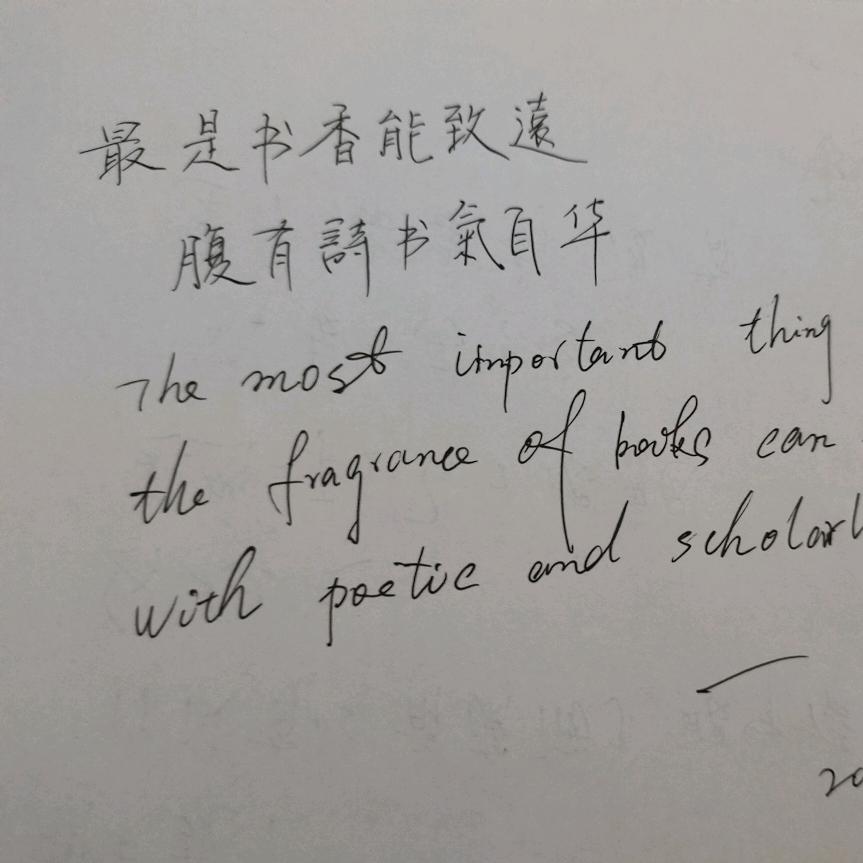 最是书香能致遠
腹有詩书氣自华
The most important thing
the fragrance of books can
with poetic and scholarl
20